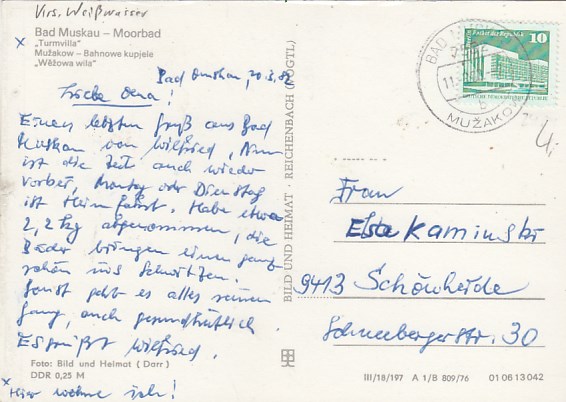 Krs. Weißwasser
Bad Muskau – Moorbad
x „Turmvilla“
Mužakow – Bahnowe kupjele
„Wěžowa wila“
Bad Muskau, 20.3.82
Liebe Oma!
Einen letzten Gruß aus Bad
Muskau von Wilfried, Nun
ist die Zeit auch wieder
vorbei, Montag oder Dienstag
ist Heimfahrt. Habe etwa
2,2 kg abgenommen, die
Bäder bringen einen ganz
schön ins Schwitzen.
Sonst geht es alles seinen
Gang, auch gesundheitlich.
Es grüßt Wilfried.
Foto: Bild und Heimat (Darr)
DDR 0,25 M
x Hier wohne ich!
BILD UND HEIMAT · REICHENBACH (VOGTL)
10
BAD
MUŽAKOW
b
Frau
Kaminski
9413 Schönheide
Schneebergerstr. 30
III/18/197 A 1/B 809/76 01 06 13 042